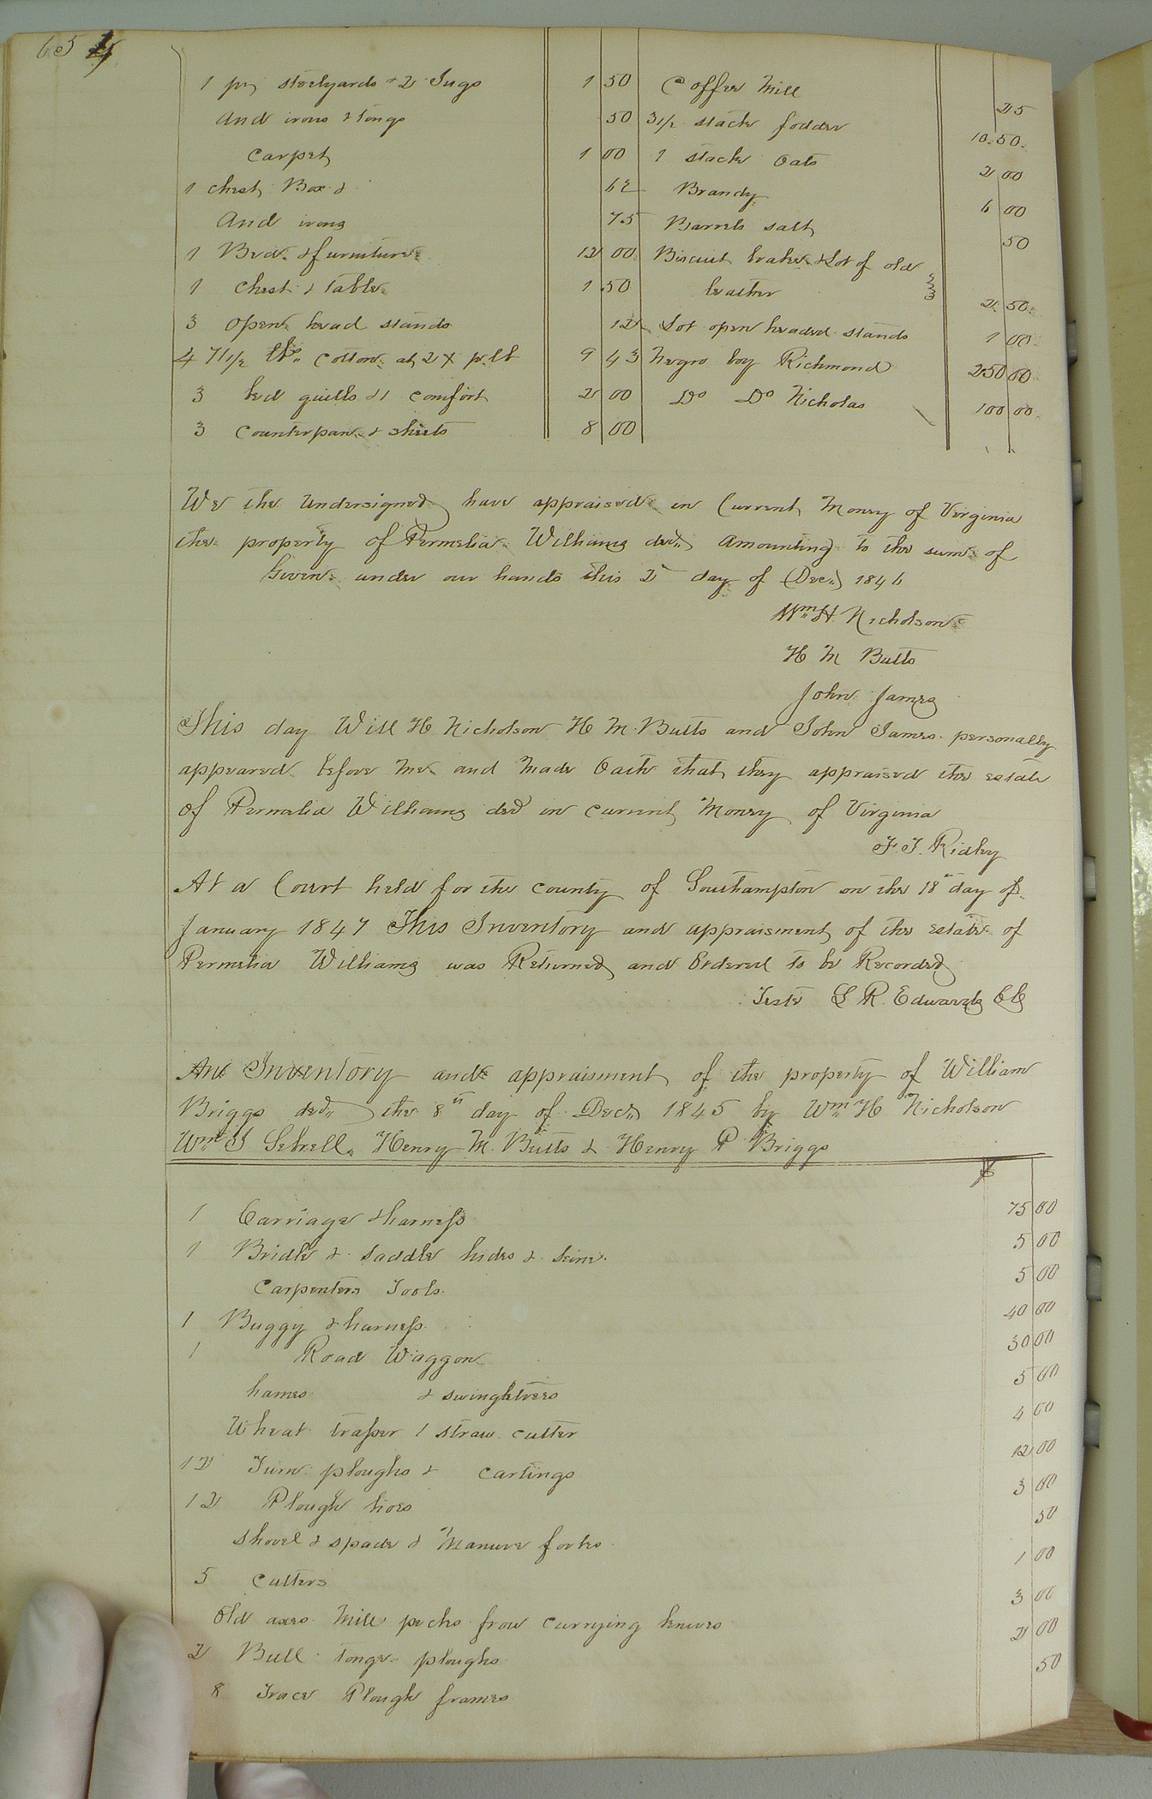 654
1 pr steelyards & 2 Jugs 1 50
And irons & tongs 50
Carpet 1 00
1 chest, Box & 62
And irons 75
1 Bed & furniture 12 00
1 Chest & Table 1 50
3 open head stands 12
471 1/2 lbs. Cotton at 2 pr lb 9 43
3 bed quilts & 1 comfort 2 00
3 Counterpan & sheets 8 00
Coffee Mill 25
3 1/2 stack fodder 10.50
1 stack Oats 2 00
Brandy 6 00
Barrels salt 50
Biscuit brake & Lot of old
leather 2 50
Lot open headed stands 1 00
Negro boy Richmond 250 00
Do Do Nicholas 100 00
We the Undersigned have appraised in Current Money of Virginia
the property of Permelia Williams decd. Amounting to the sum of
Given under our hands this 2 day of Decr. 1846
Wm. H. Nicholson
H M Butts
John James
This day Will H Nicholson H M Butts and John James personally
appeared before me and made Oath that they appraised the estate
of Permelia Williams decd in current Money of Virginia
F. J. Ridley
At a Court held for the county of Southampton on the 18th day of
January 1847 This Inventory and appraisment of the estate of
Permelia Williams was Returned and Ordered to be Recorded
Teste L R. Edwards CC
An Inventory and appraisment of the property of William
Briggs decd. the 8th day of Decr. 1845 by Wm. H Nicholson
Wm. J Sebrell, Henry M. Butts & Henry P Briggs
$
1 Carriage & harness 75 00
1 Bridle & saddle hides & seine 5 00
Carpenters Tools 5 00
1 Buggy & harness 40 00
1 Road Waggon 30 00
hames & swingletrees 5 00
Wheat 1 straw cutter 4 00
12 Turn ploughs & castings 12 00
12 Plough hoes 3 00
Shovel & spade & Manure forks 50
5 Cutters 1 00
Old axes Mill pecks frow currying knives 3 00
2 Bull tonge ploughs 2 00
8 Trace Plough frames 50